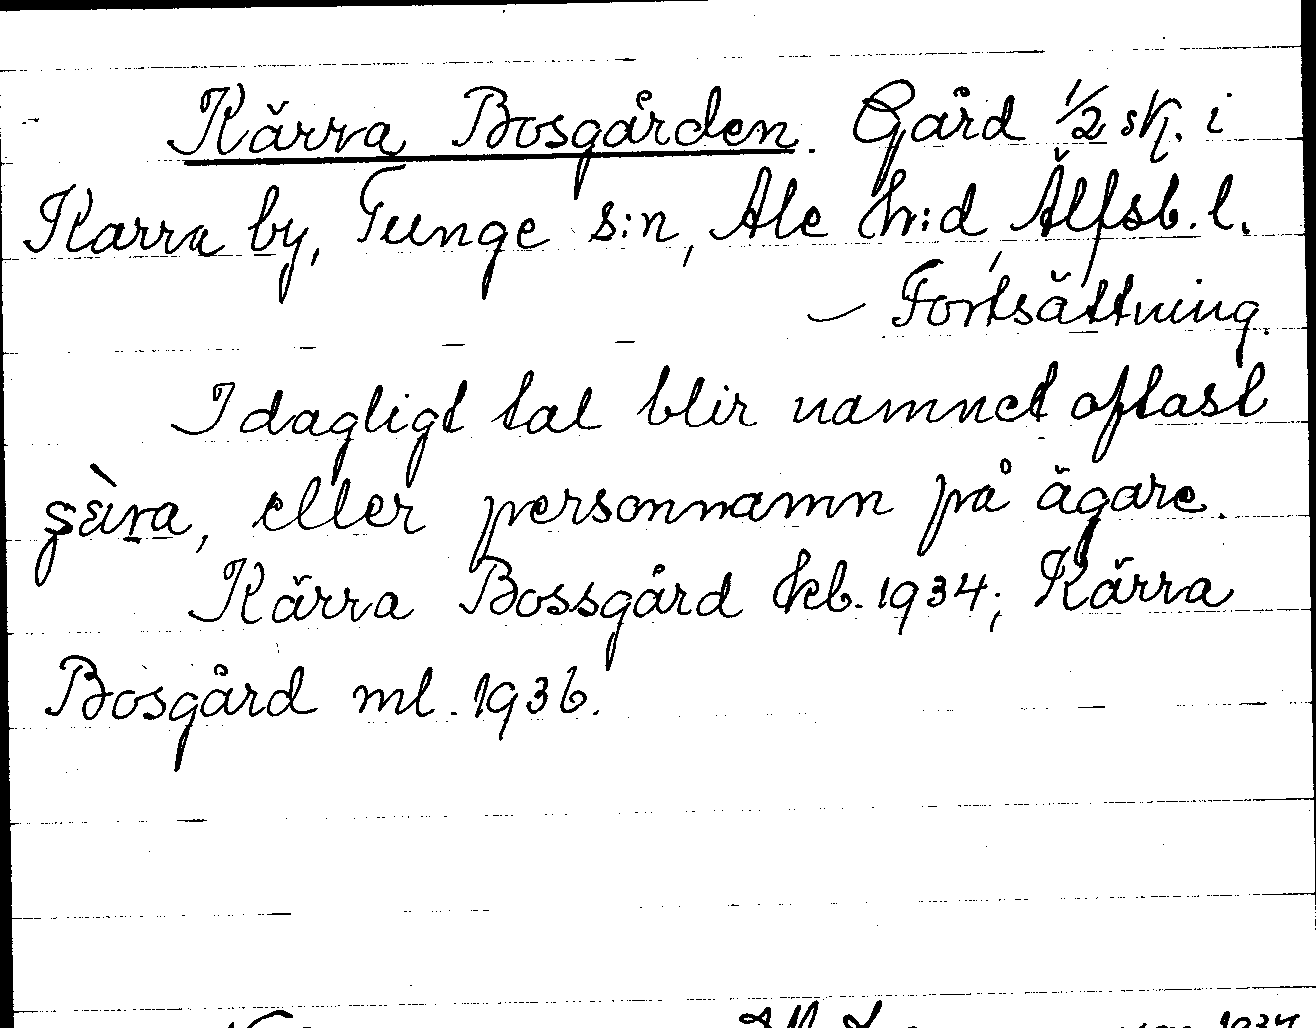 Kärra Bosgården. Gård 1/2 sk. i
Karra by, Tunge s:n, Ale hr:d, Älfsb. l.
– Fortsättning.
I dagligt tal blir namnet oftast
eller personnamn på ägare.
Kärra Bossgård kb. 1934; Kärra
Bosgård ml. 1936.